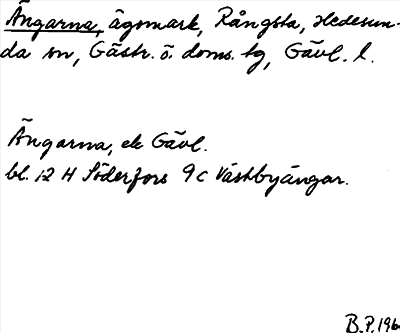 Ängarna, ägomark, Rångsta, Hedesun-
da sn, Gästr. ö. doms. tg, Gävl. l.
Ängarna, ek Gävl.
bl. 12 H Söderfors 9c Västbyängar.
B.P. 196